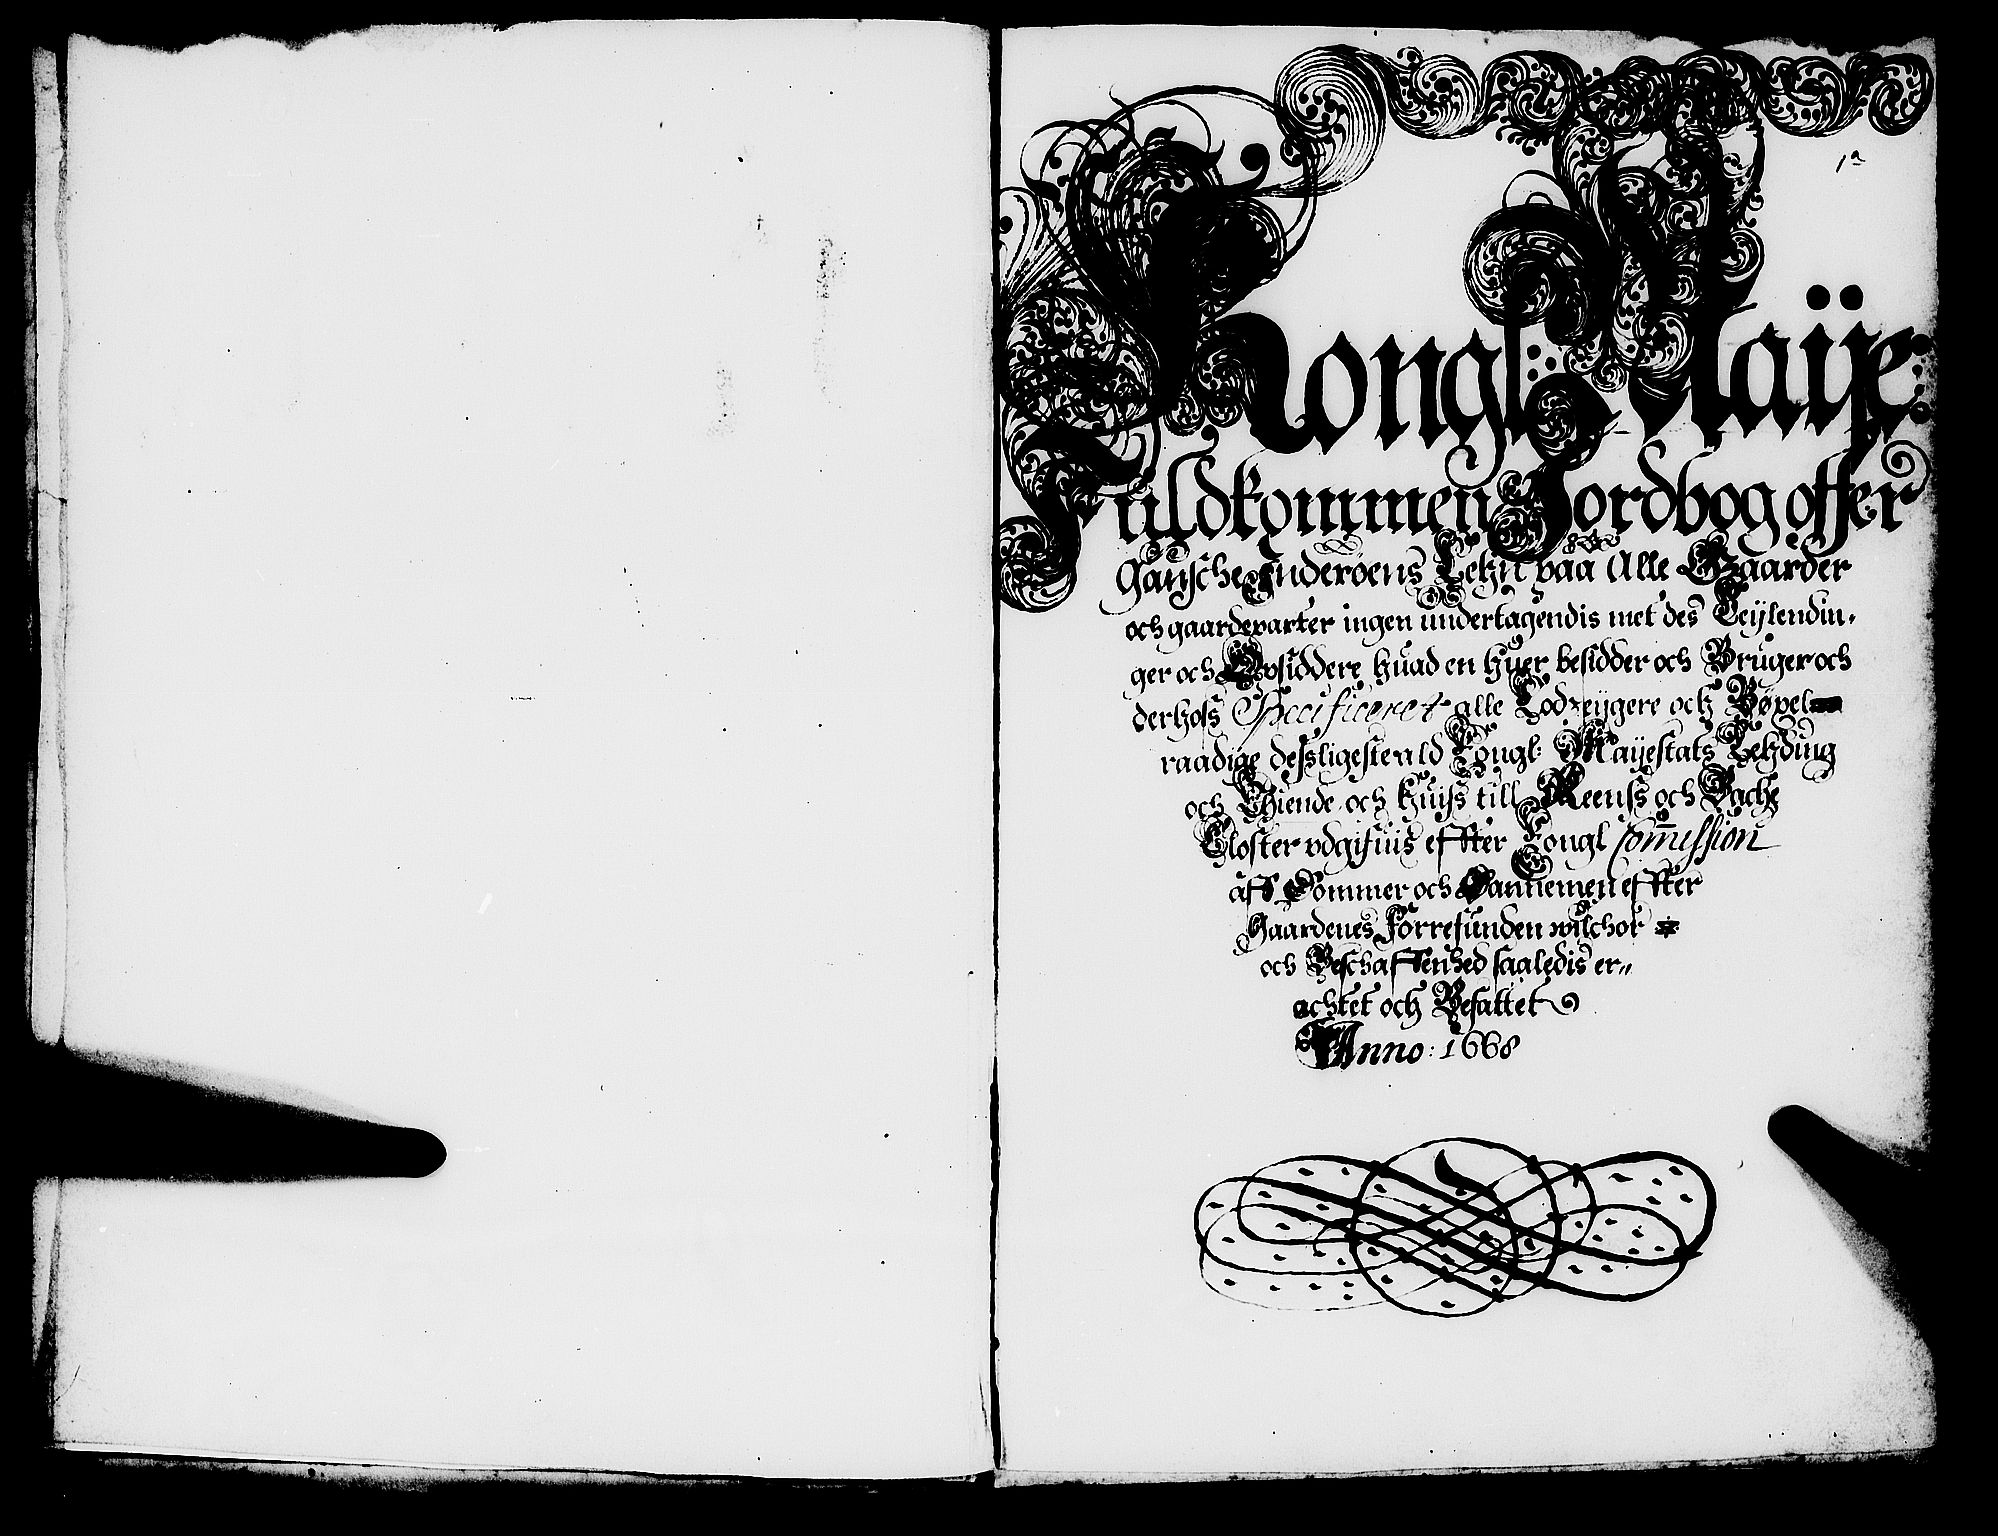 1a
Kongl: Maije:
Fuldkommen Jordbog offer
Gansche Inderøens Lehn paa Alle Gaarder
och gaardeparter ingen undertagendis met des Leijlendin,
ger och Opsiddere huad en huer besidder och Bruger och
derhoss Specificeret alle Lodzeijgere och Bøxel
raadige dessligeste ald Kongl: Maijestats Lehding
och Thiende och huiss till Reenss och Bache
Closter udgifuis effter Kongl Commission
aff Dommer och Dannemen effter
Gaardenes Forrefunden wilchor
och Beschaffenhed saaledis er„
achtet och Befattet
Anno: 1668